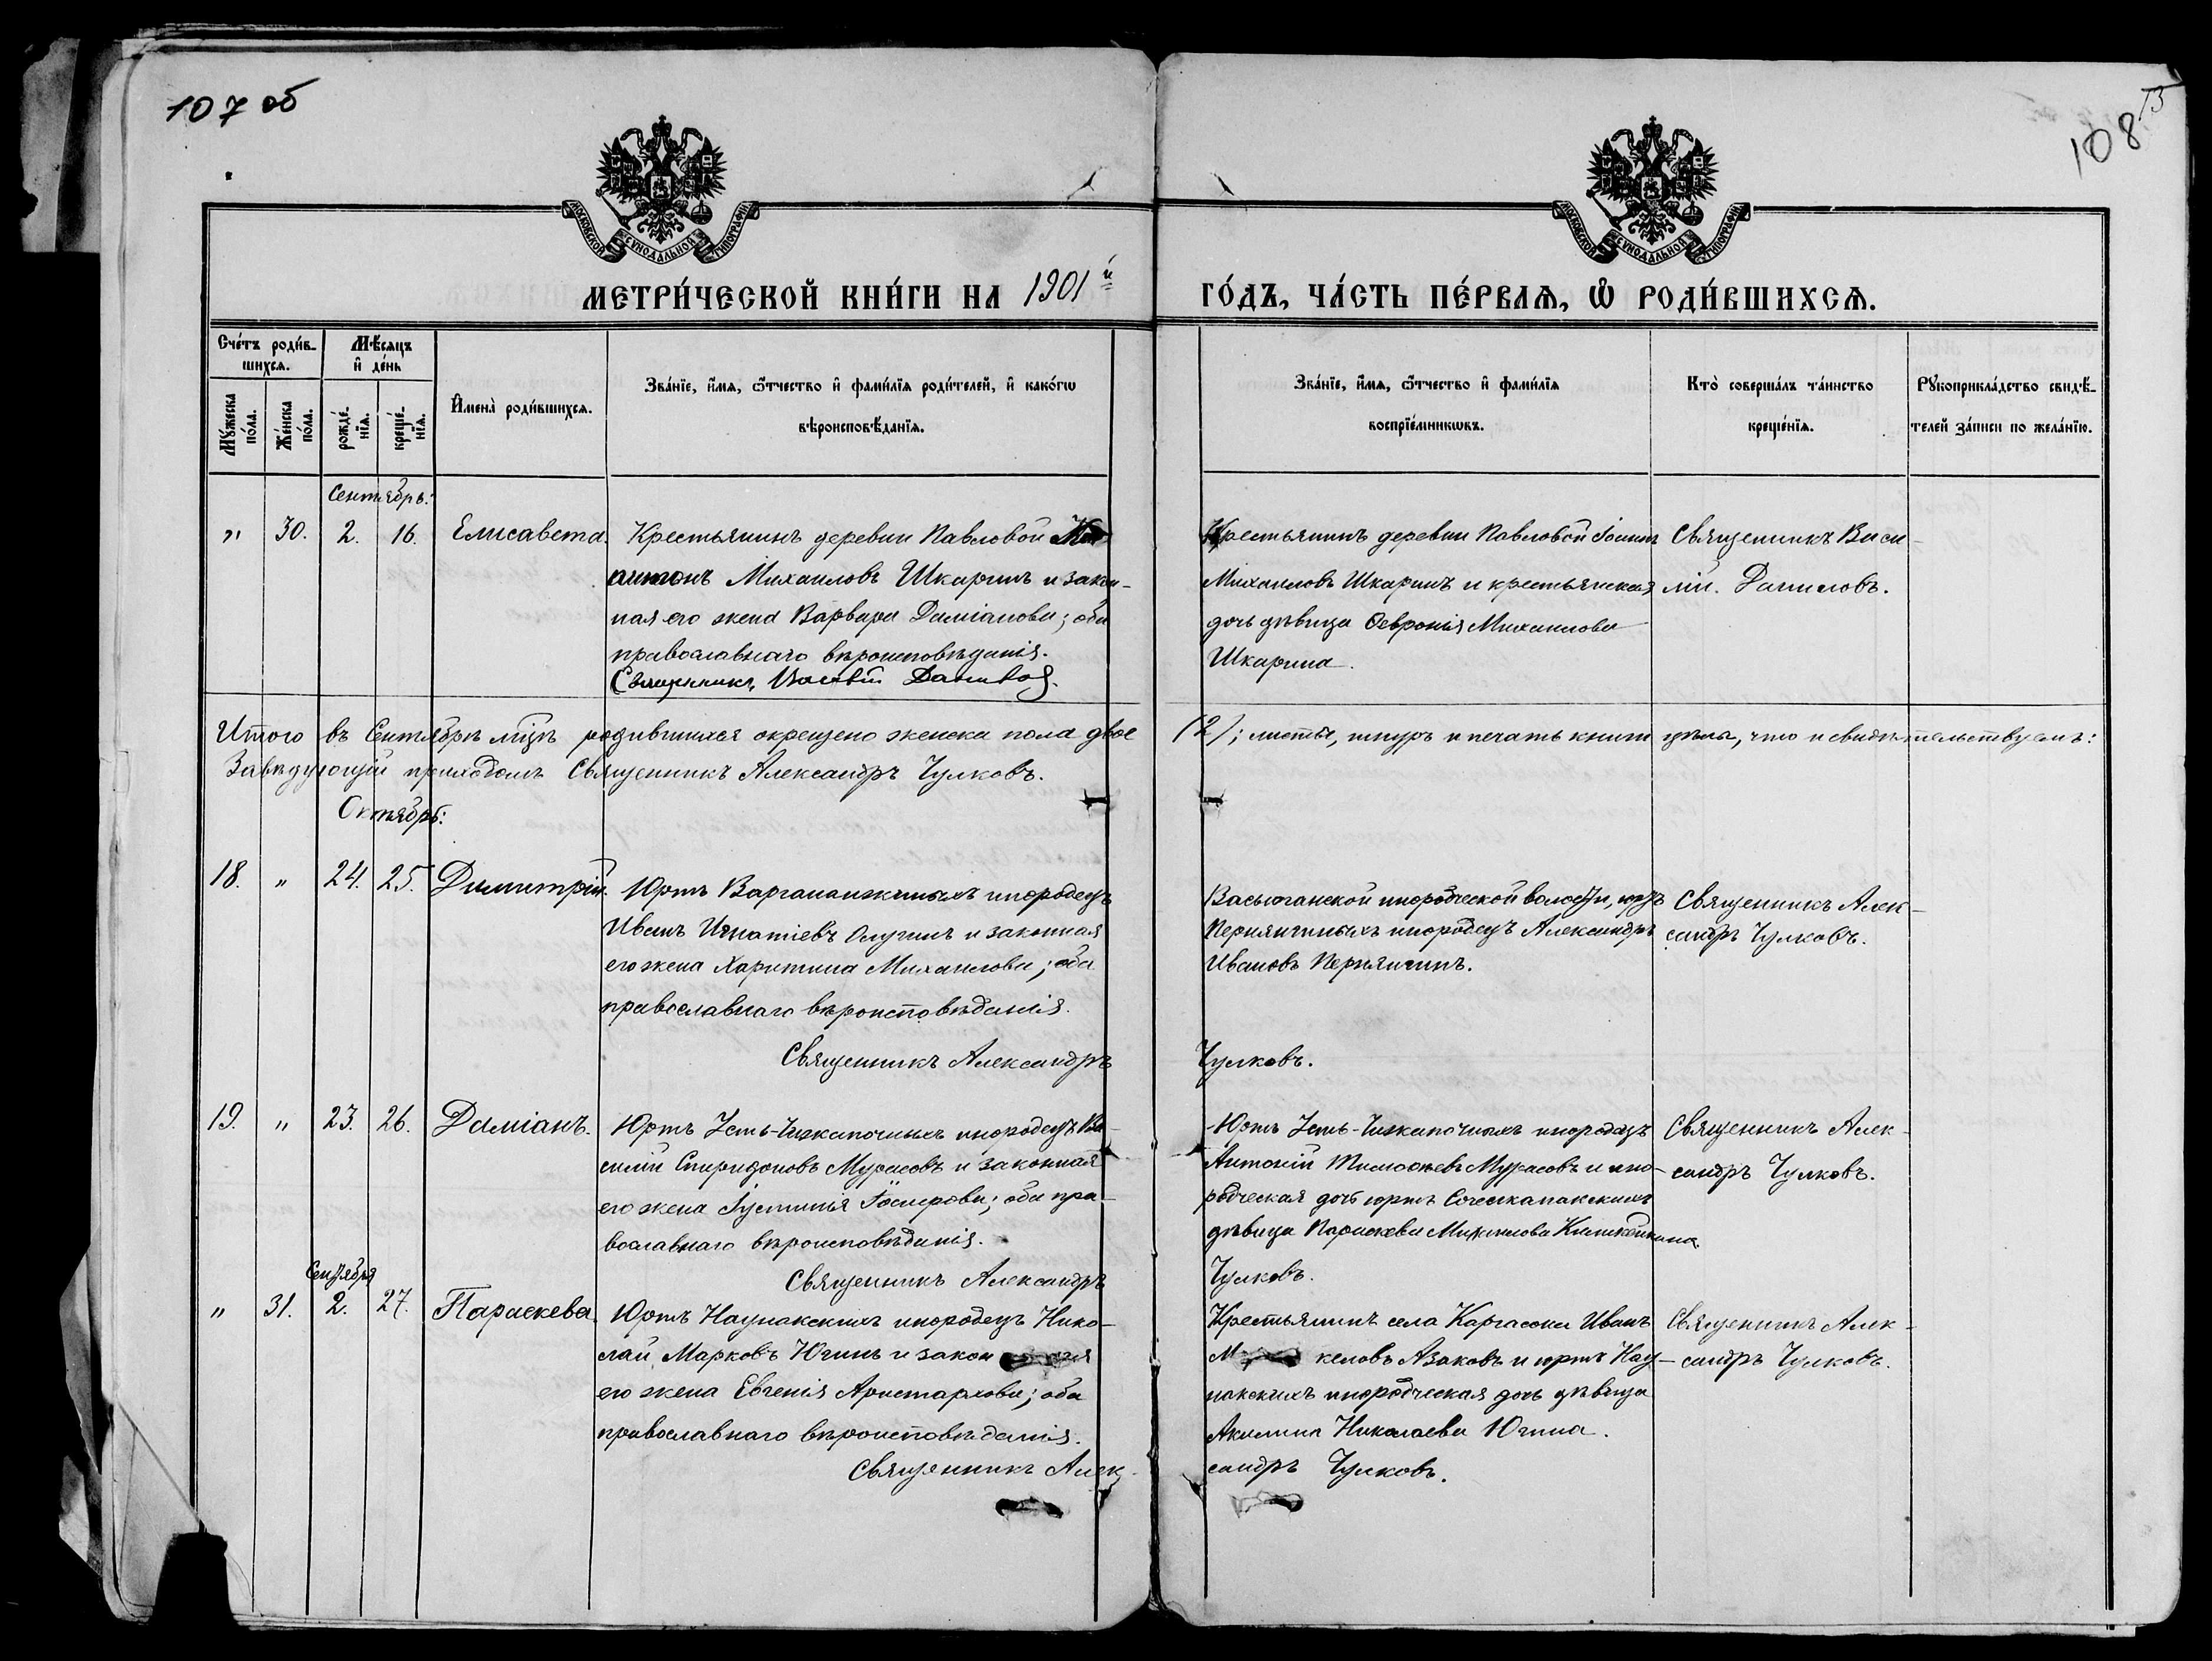 107 об
108
73
МОСКОВСКОЙ СѴНОДАЛЬНОЙ ТИПОГРАФІИ
МОСКОВСКОЙ СѴНОДАЛЬНОЙ ТИПОГРАФІИ
МЕТРИ́ЧЕСКОЙ КНИ́ГИ НА 1901й
ГО́ДЪ, ЧА́СТЬ ПЕ́РВАѦ, Ѡ҆ РОДИ́ВШИХСѦ.
Сче́тъ роди́в-
шихсѧ.
Му́жеска по́ла.
Же́нска по́ла.
Мѣ́сѧцъ
и҆ де́нь
рожде́-
нїѧ.
креще́-
нїѧ.
И҆мена̀ роди́вшихсѧ.
Зва́нїе, и҆́мѧ, ѻ҆́тчество и҆ фами́лїѧ роди́телей, и҆ како́гѡ
вѣроисповѣ́данїѧ.
Зва́нїе, и҆́мѧ, ѻ҆́тчество и҆ фами́лїѧ
воспрїе́мникѡвъ.
Кто̀ соверша́лъ та́инство
креще́нїѧ.
Рꙋкоприкла́дство свидѣ́-
телей за́писи по жела́нїю.
Сентябрь:
„ 30. 2. 16. Елисавета.
Крестьянинъ деревни Павловой
Михаиловъ Шкаринъ и закон-
ная его жена Варвара Даміанова; оба
православнаго вѣроисповѣданія.
Священникъ Василій Данилов.
Крестьянинъ деревни Павловой Іоаннъ
Михаиловъ Шкаринъ и крестьянская
дочь дѣвица Ѳевронія Михаилова
Шкарина.
Священникъ Васи-
лій Даниловъ.
Итого въ Сентябрѣ мѣсяцѣ родившихся окрещено женска пола двое (2); листы, шнуръ и печать книги цѣлы, что и свидѣтельствуемъ:
Завѣдующій приходомъ Священникъ Александръ Чулковъ.
Октябрь:
18. „ 24. 25. Димитрій.
Юртъ Варгананжиныхъ инородецъ
Иванъ Игнатіевъ Олугинъ и законная
его жена Харитина Михаилова; оба
православнаго вѣроисповѣданія.
Священникъ Александръ Чулковъ.
Васюганской инородческой волости, юртъ
Пернянгиныхъ инородецъ Александръ
Ивановъ Пернянгинъ.
Священникъ Алек-
сандръ Чулковъ.
19. „ 23. 26. Даміанъ.
Юртъ Усть-Чижапочныхъ инородецъ Ва-
силій Спиридоновъ Мурасовъ и законная
его жена Іустинія; оба пра-
вославнаго вѣроисповѣданія.
Священникъ Александръ Чулковъ.
Юртъ Усть-Чижапочныхъ инородецъ
Антоній Тимоѳеевъ Мурасовъ и ино-
родческая дочь юртъ
дѣвица Параскева Михаилова
Священникъ Алек-
сандръ Чулковъ.
Сентября
„ 31. 2. 27. Параскева.
Юртъ Наунакскихъ инородецъ Нико-
лай Марковъ Югинъ и законная
его жена Евгенія Аристархова; оба
православнаго вѣроисповѣданія.
Священникъ Алек-
сандръ Чулковъ.
Крестьянинъ села Каргасока Иванъ
Азаковъ и юртъ Нау-
накскихъ инородческая дочь дѣвица
Акилина Николаева Югина.
Священникъ Алек-
сандръ Чулковъ.